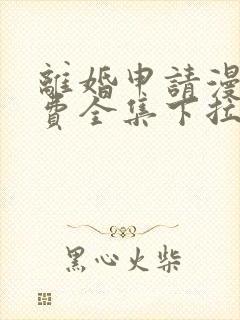 離婚申請漫
費全集下拉
黑心火柴